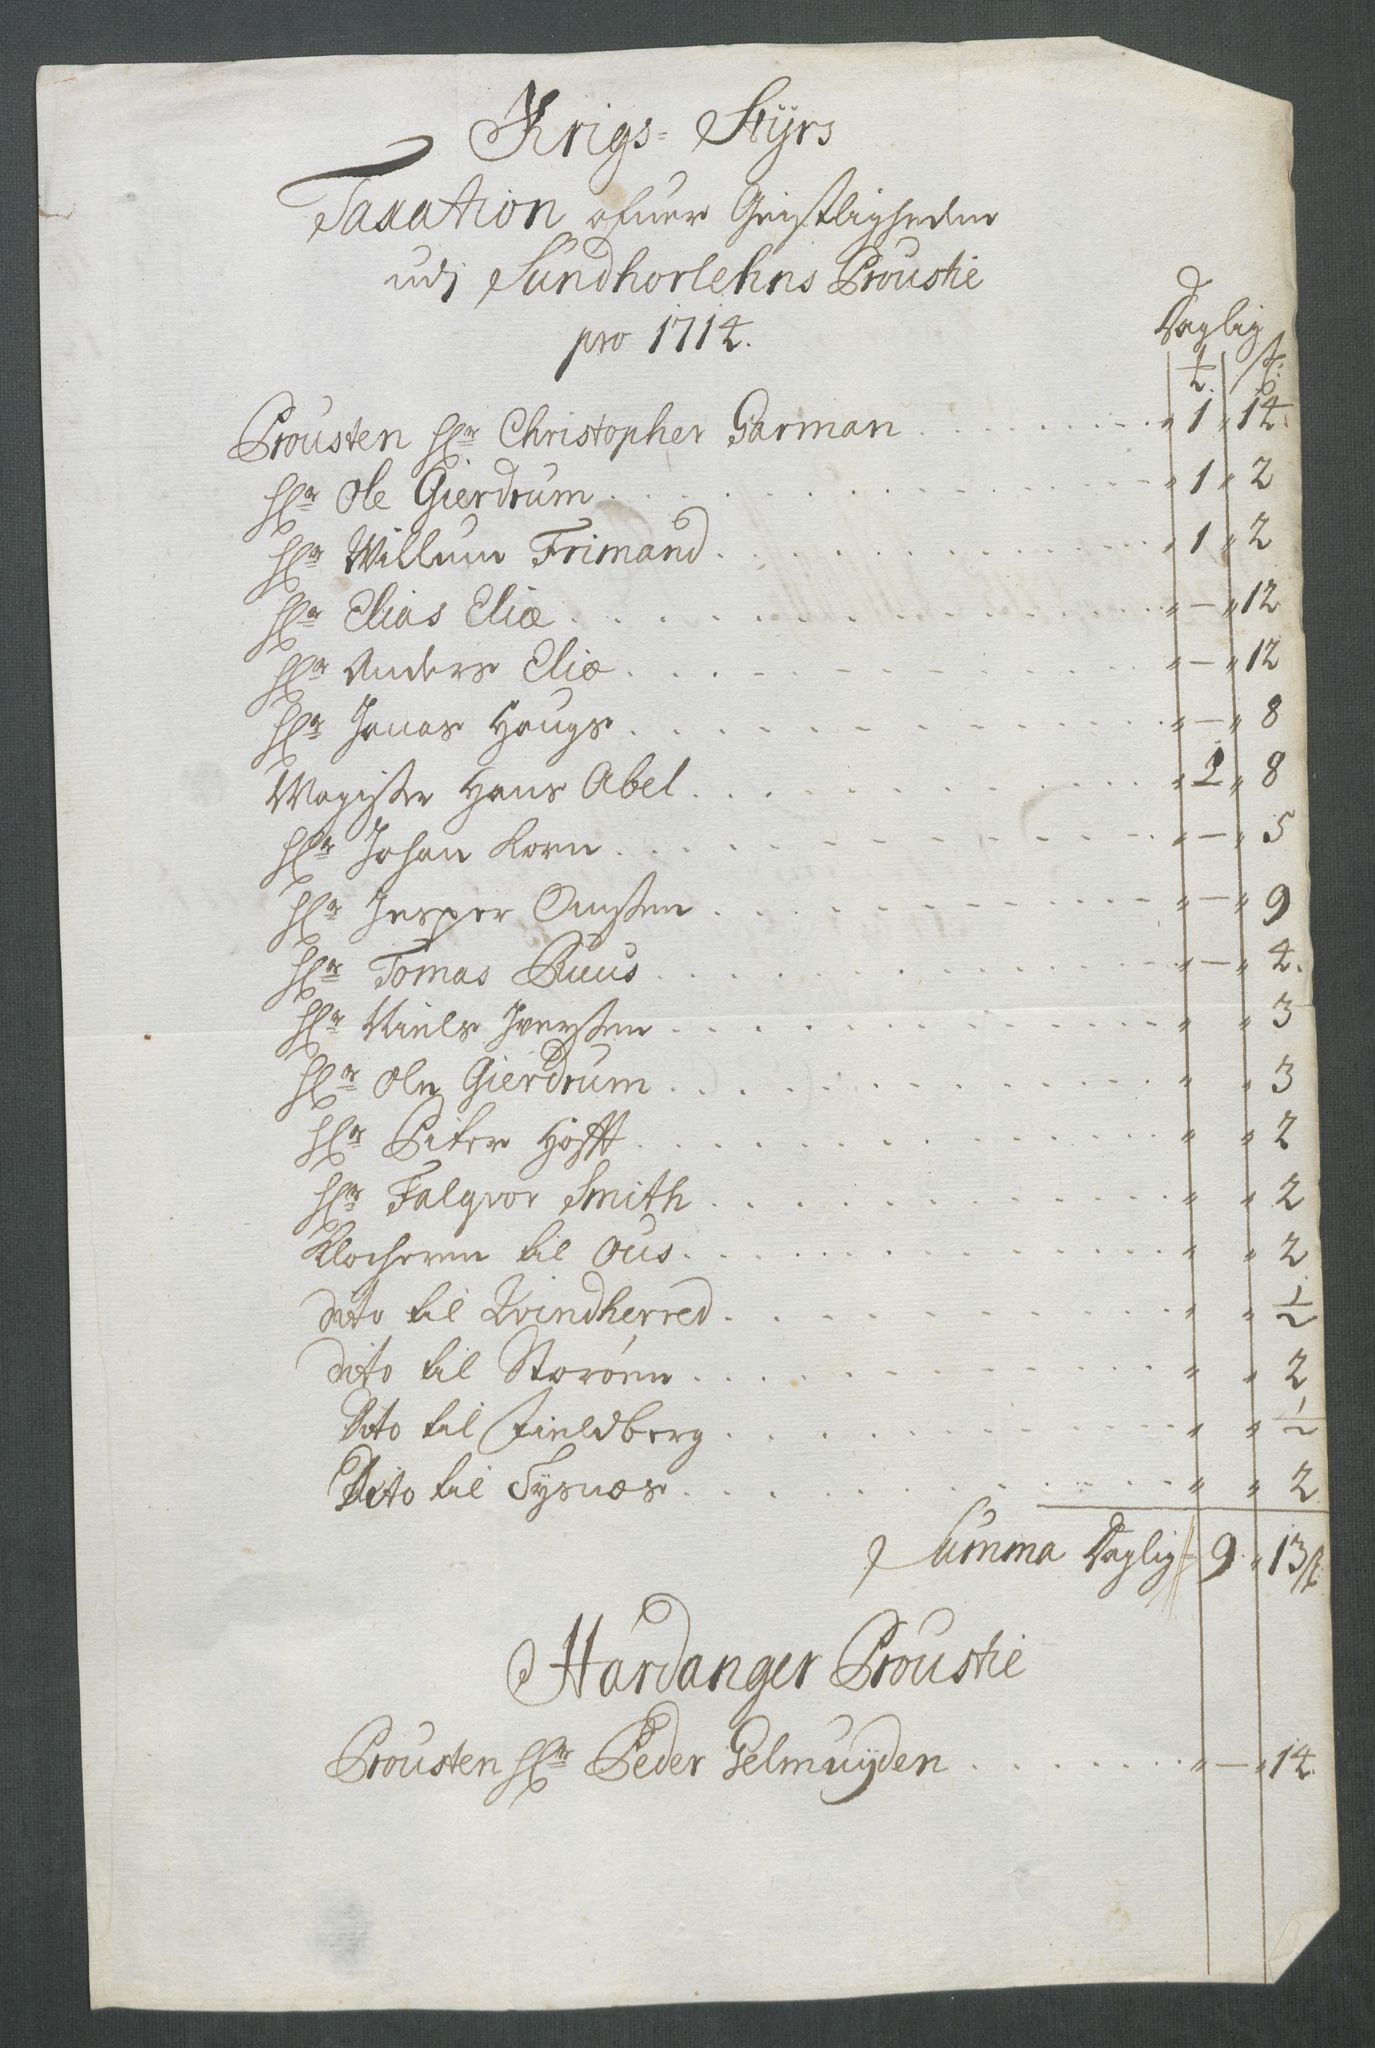 Krigs- Stÿrs
Taxation ofuer Geistligheden
udj Sundhorlehns Proustie
pro 1714.
Daglig
Prousten Hr Christopher Garman . . . " 1 " 14.
Hr Ole Gierdrum . . . " 1 " 2
Hr Willum Frimand . . . " 1 " 2
Hr Elias Eliæ . . . " — " 12
Hr Anders Eliæ . . . " — " 12
Hr Jonas Haugs . . . " — " 8
Magister Hans Abel . . . " 2 " 8
Hr Johan Korn . . . " — " 5
Hr Jesper . . . " — " 9
Hr Tomas Buus . . . " — " 4.
Hr Niels Iversen . . . " " 3
Hr Ole Gierdrum . . . " " 3
Hr Piter Hofft . . . " " 2
Hr Falqvor Smith . . . " " 2
Klocheren til Ous . . . " " 2
dito til Qvindherred . . . " " 1/2
dito til Storöen . . . " " 2
Dito til Fieldberg . . . " " 1/2
Dito til Tysnæs . . . " " 2
Summa Daglig 9 " 13 ß
Hardanger Proustie
Prousten Hr Peder Gelmuÿden . . . " — " 14.